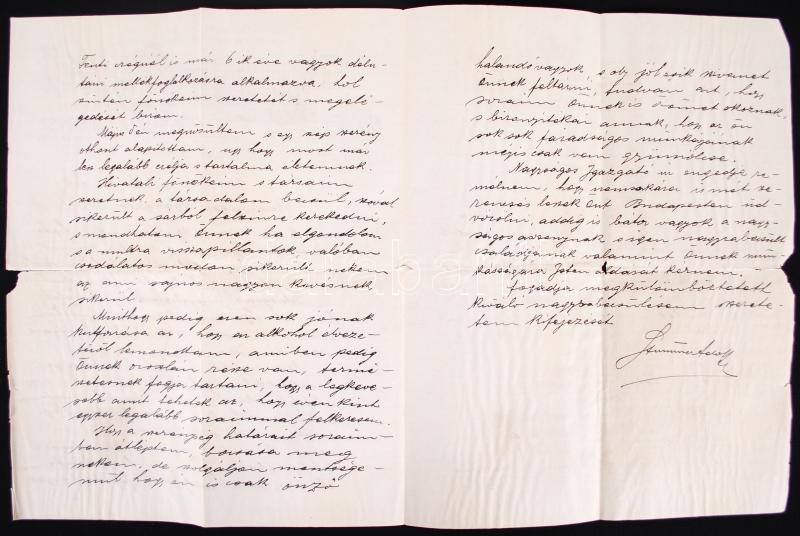 Fenti cégnél is már 6 ik éve vagyok délu-
táni mellékfoglalkozásra alkalmazva, hol
szintén főnökeim szeretetét s megelé-
gedését birom.
Május 5 én megnősültem s egy szép szerény
otthont alapítottam, ugy hogy most már
lesz legalább célja s tartalma életemnek.
Hivatali főnökeim s társaim
szeretnek, a társadalom becsül, szóval
sikerült a sárból felszinre kerekedni,
s mondhatom Önnek ha elgondolom
s a multra visszapillantok valóban
csodálatos módon sikerült nekem
az ami sajnos nagyon kevésnek
sikerül.
Minthogy pedig ezen sok jónak
kutforrása az, hogy az alkohol élveze-
téről lemondtam, amiben pedig
Önnek oroszlán része van, termé-
szetesnek fogja tartani, hogy a legkeve-
sebb amit tehetek az, hogy évenkint
egyszer legalább soraimmal felkeresem.
Hogy a szerénység határait soraim-
ban átléptem, bocsássa meg
nekem, de szolgáljon mentsége-
mül hogy én is csak önző
halandó vagyok, s oly jól esik szivemet
Önnek feltárni, tudván azt, hogy
soraim Önnek is örömet okoznak,
s bizonyítékai annak, hogy az ön
sok sok fáradságos munkájának
mégis csak van gyümölcse.
Nagyságos Igazgató úr engedje re-
mélnem, hogy nemsokára ismét sze-
rencsés leszek Önt Budapesten üd-
vözölni, addig is bátor vagyok a nagy-
ságos asszonynak s igen nagyrabecsült
családjának valamint Önnek mun-
kásságára Isten áldását kérnem.
Fogadja megkülömböztetett
kiváló nagyrabecsülésem szerete-
tem kifejezését